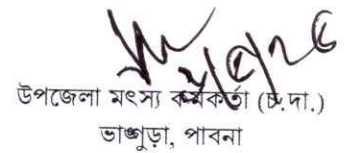 উপজেলা মৎস্য কর্মকর্তা (চ.দা.)
ভাঙ্গুড়া, পাবনা